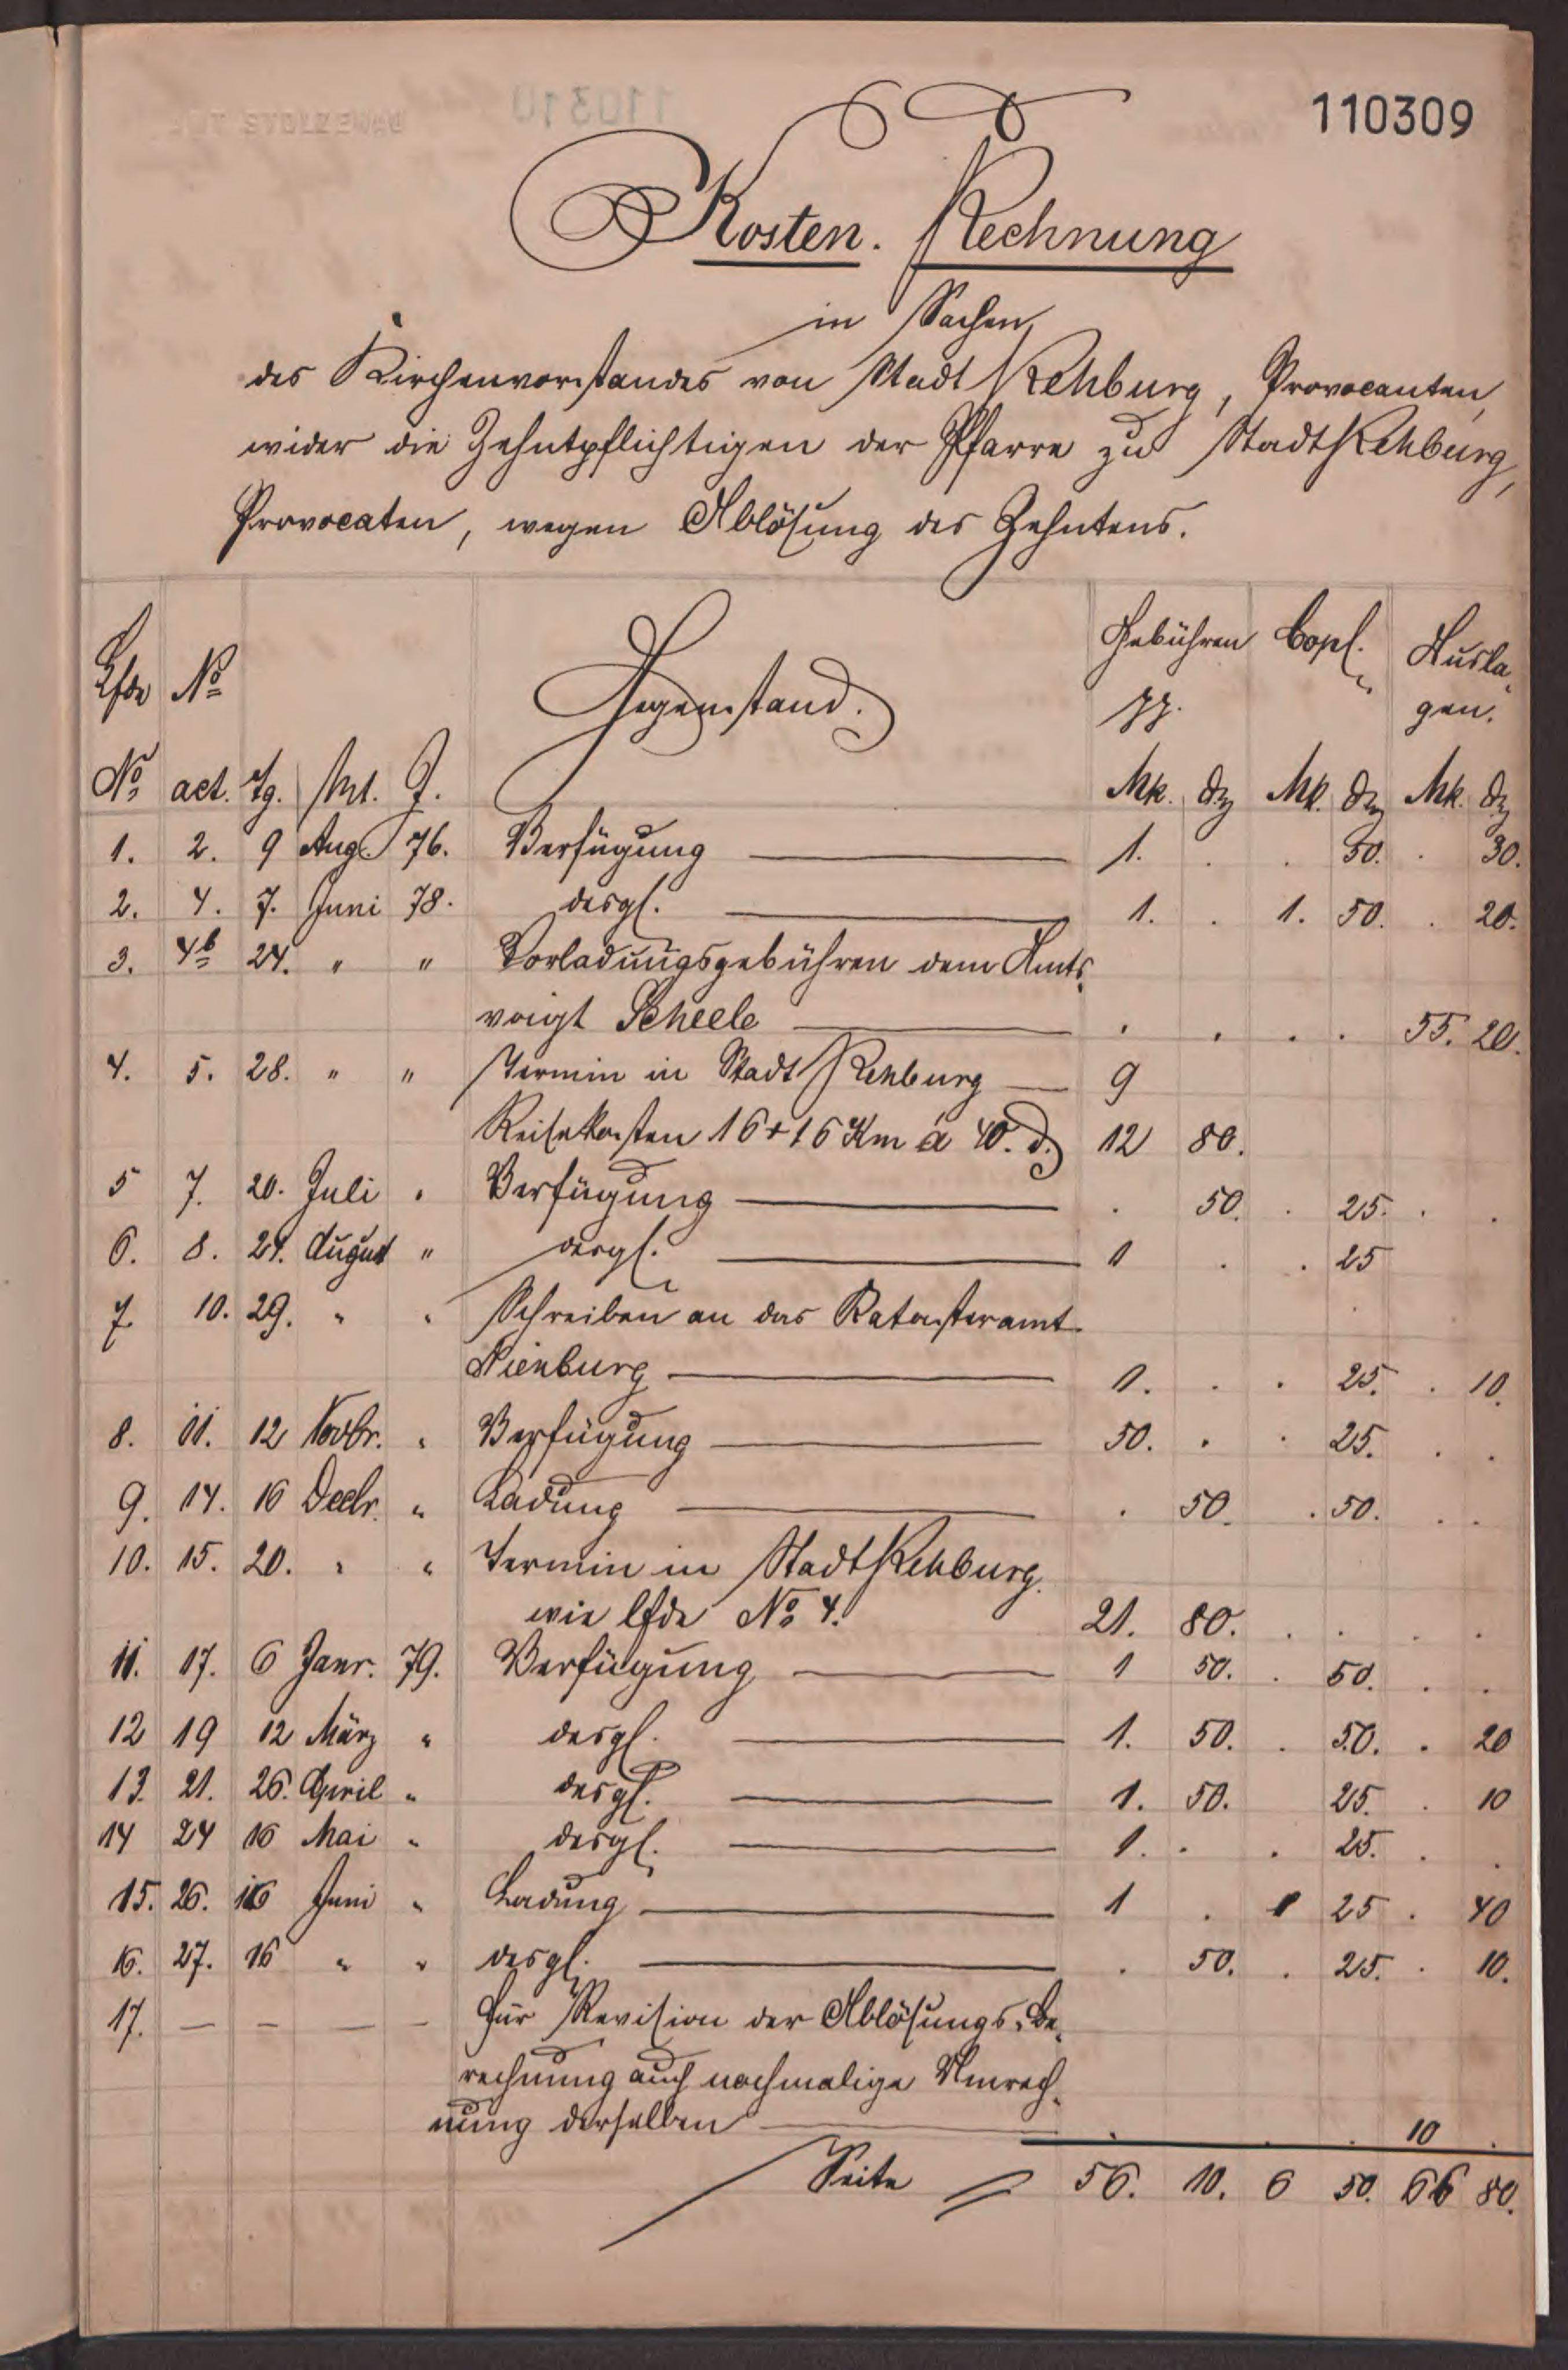 110309
Kosten. Rechnung
in Sachen
des Kirchenvorstandes von Stadt Rehburg, Provocanten,
wider die Zehntpflichtigen der Pfarre zu Stadt Rehburg,
Provocaten, wegen Ablösung des Zehntens.
Lfde No Gegenstand. Gebühren Copl. Ausla-
gen.
No act. Tg. Mt. J. Mk. d Mk. d Mk. d
1. 2. 9 Aug. 76. Verfügung — 1. . . 50. . 30.
2. 4. 7. Juni 78. desgl. — 1. . 1. 50. . 20.
3. 4b 24. " " Vorladungsgebühren dem Amts-
voigt Scheele — . . . . 55. 20.
4. 5. 28. " " Termin in Stadt Rehburg — 9
Reisekosten 16+16 Km á 40. d. 12 80.
5 7. 20. Juli " Verfügung — . 50. . 25. . .
6. 8. 21. August " desgl. — 1 . . 25
7. 10. 29. " " Schreiben an das Katasteramt
Nienburg — 1. . . 25. . 10.
8. 11. 12 Novbr. " Verfügung — 50. . . 25. . .
9. 14. 16 Decbr. " Ladung — . 50. . 50. . .
10. 15. 20. " " Termin in Stadt Rehburg.
wie lfde No 4. 21. 80. . . . .
11. 17. 6 Janr. 79. Verfügung — 1 50. . 50. . .
12 19 12 März " desgl. — 1. 50. . 50. . 20
13. 21. 26. April " desgl. — 1. 50. 25. . 10
14 24 16 Mai " desgl. — 1. . . 25. . .
15. 26. 16 Juni " Ladung — 1 . 1 25 . 40
16. 27. 16 " " desgl. — . 50. . 25. . 10.
17. — — — — Für Revision der Ablösungs-Be-
rechnung auch nochmalige Umrech-
nung derselben — . . . 10 .
Seite = 56. 10. 6 50. 66 80.